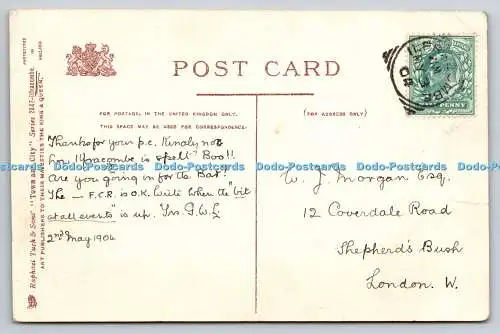 POST CARD
FOR POSTAGE, IN THE UNITED KINGDOM ONLY.
THIS SPACE MAY BE USED FOR CORRESPONDENCE.
(FOR ADDRESS ONLY)
Thanks for your p.c. Kindly note
how Ilfracombe is spelt. Boo!!
Are you going in for the Bat?
The — F.C.R. is O.K. Write when the "bit
at all events" is up. Yrs. G.W.L
2nd May 1904
W. J. Morgan Esq.
12 Coverdale Road
Shepherd's Bush
London. W.
Raphael Tuck & Sons' "Town and City" Series 2247-Ilfracombe.
ART PUBLISHERS TO THEIR MAJESTIES THE KING & QUEEN.
PHOTOTYPED
IN
PENNY
Dodo-Postcards Dodo-Postcards Dodo-Postcards Dodo-Postcards Dodo-Postcards